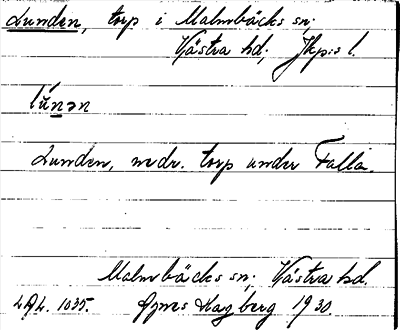 Lunden, torp i Malmbäcks sn;
Västra hd; Jkp:s l.
lúnən
Lunden, m. dr. torp under Falla.
Malmbäcks sn; Västra hd.
LAL. 1035. Agnes Hagberg 1930.